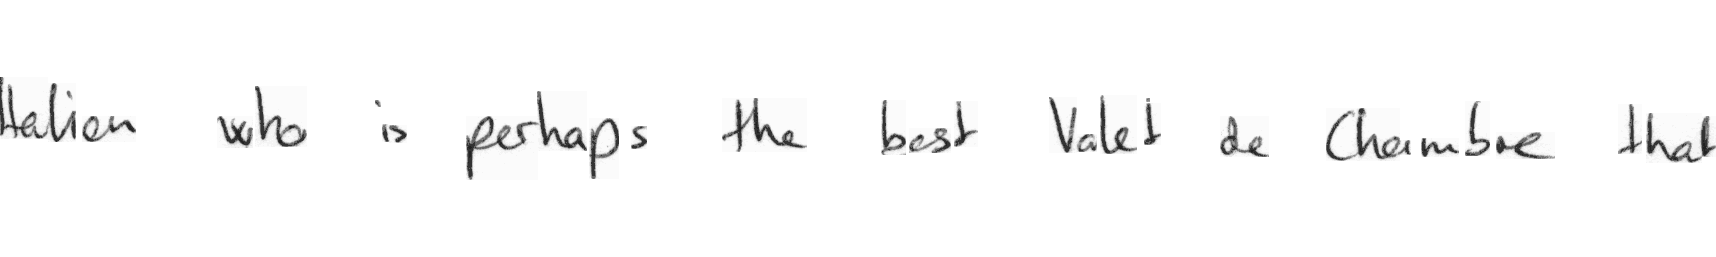 Italian who is perhaps the best Valet de Chambre that